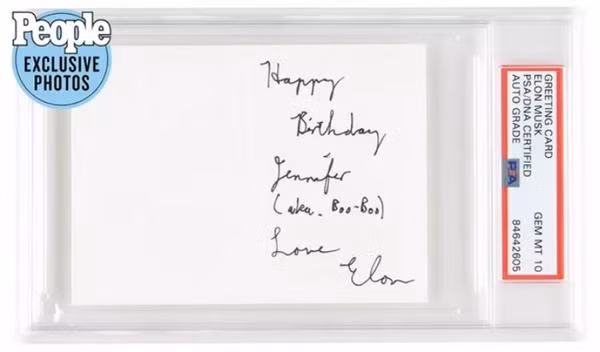 People
EXCLUSIVE
PHOTOS
Happy
Birthday
Jennifer
(aka. Boo-Boo)
Love
Elon
GREETING CARD
ELON MUSK
PSA/DNA CERTIFIED
AUTO GRADE
PSA
GEM MT 10
84642605